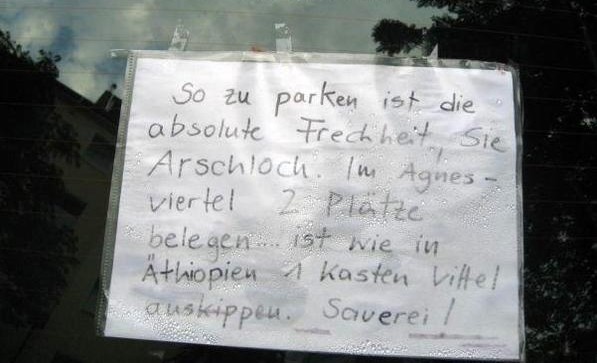 So zu parken ist die
absolute Frechheit, Sie
Arschloch. Im Agnes-
viertel 2 Plätze
belegen... ist wie in
Äthiopien 1 Kasten Vittel
auskippen. Sauerei!